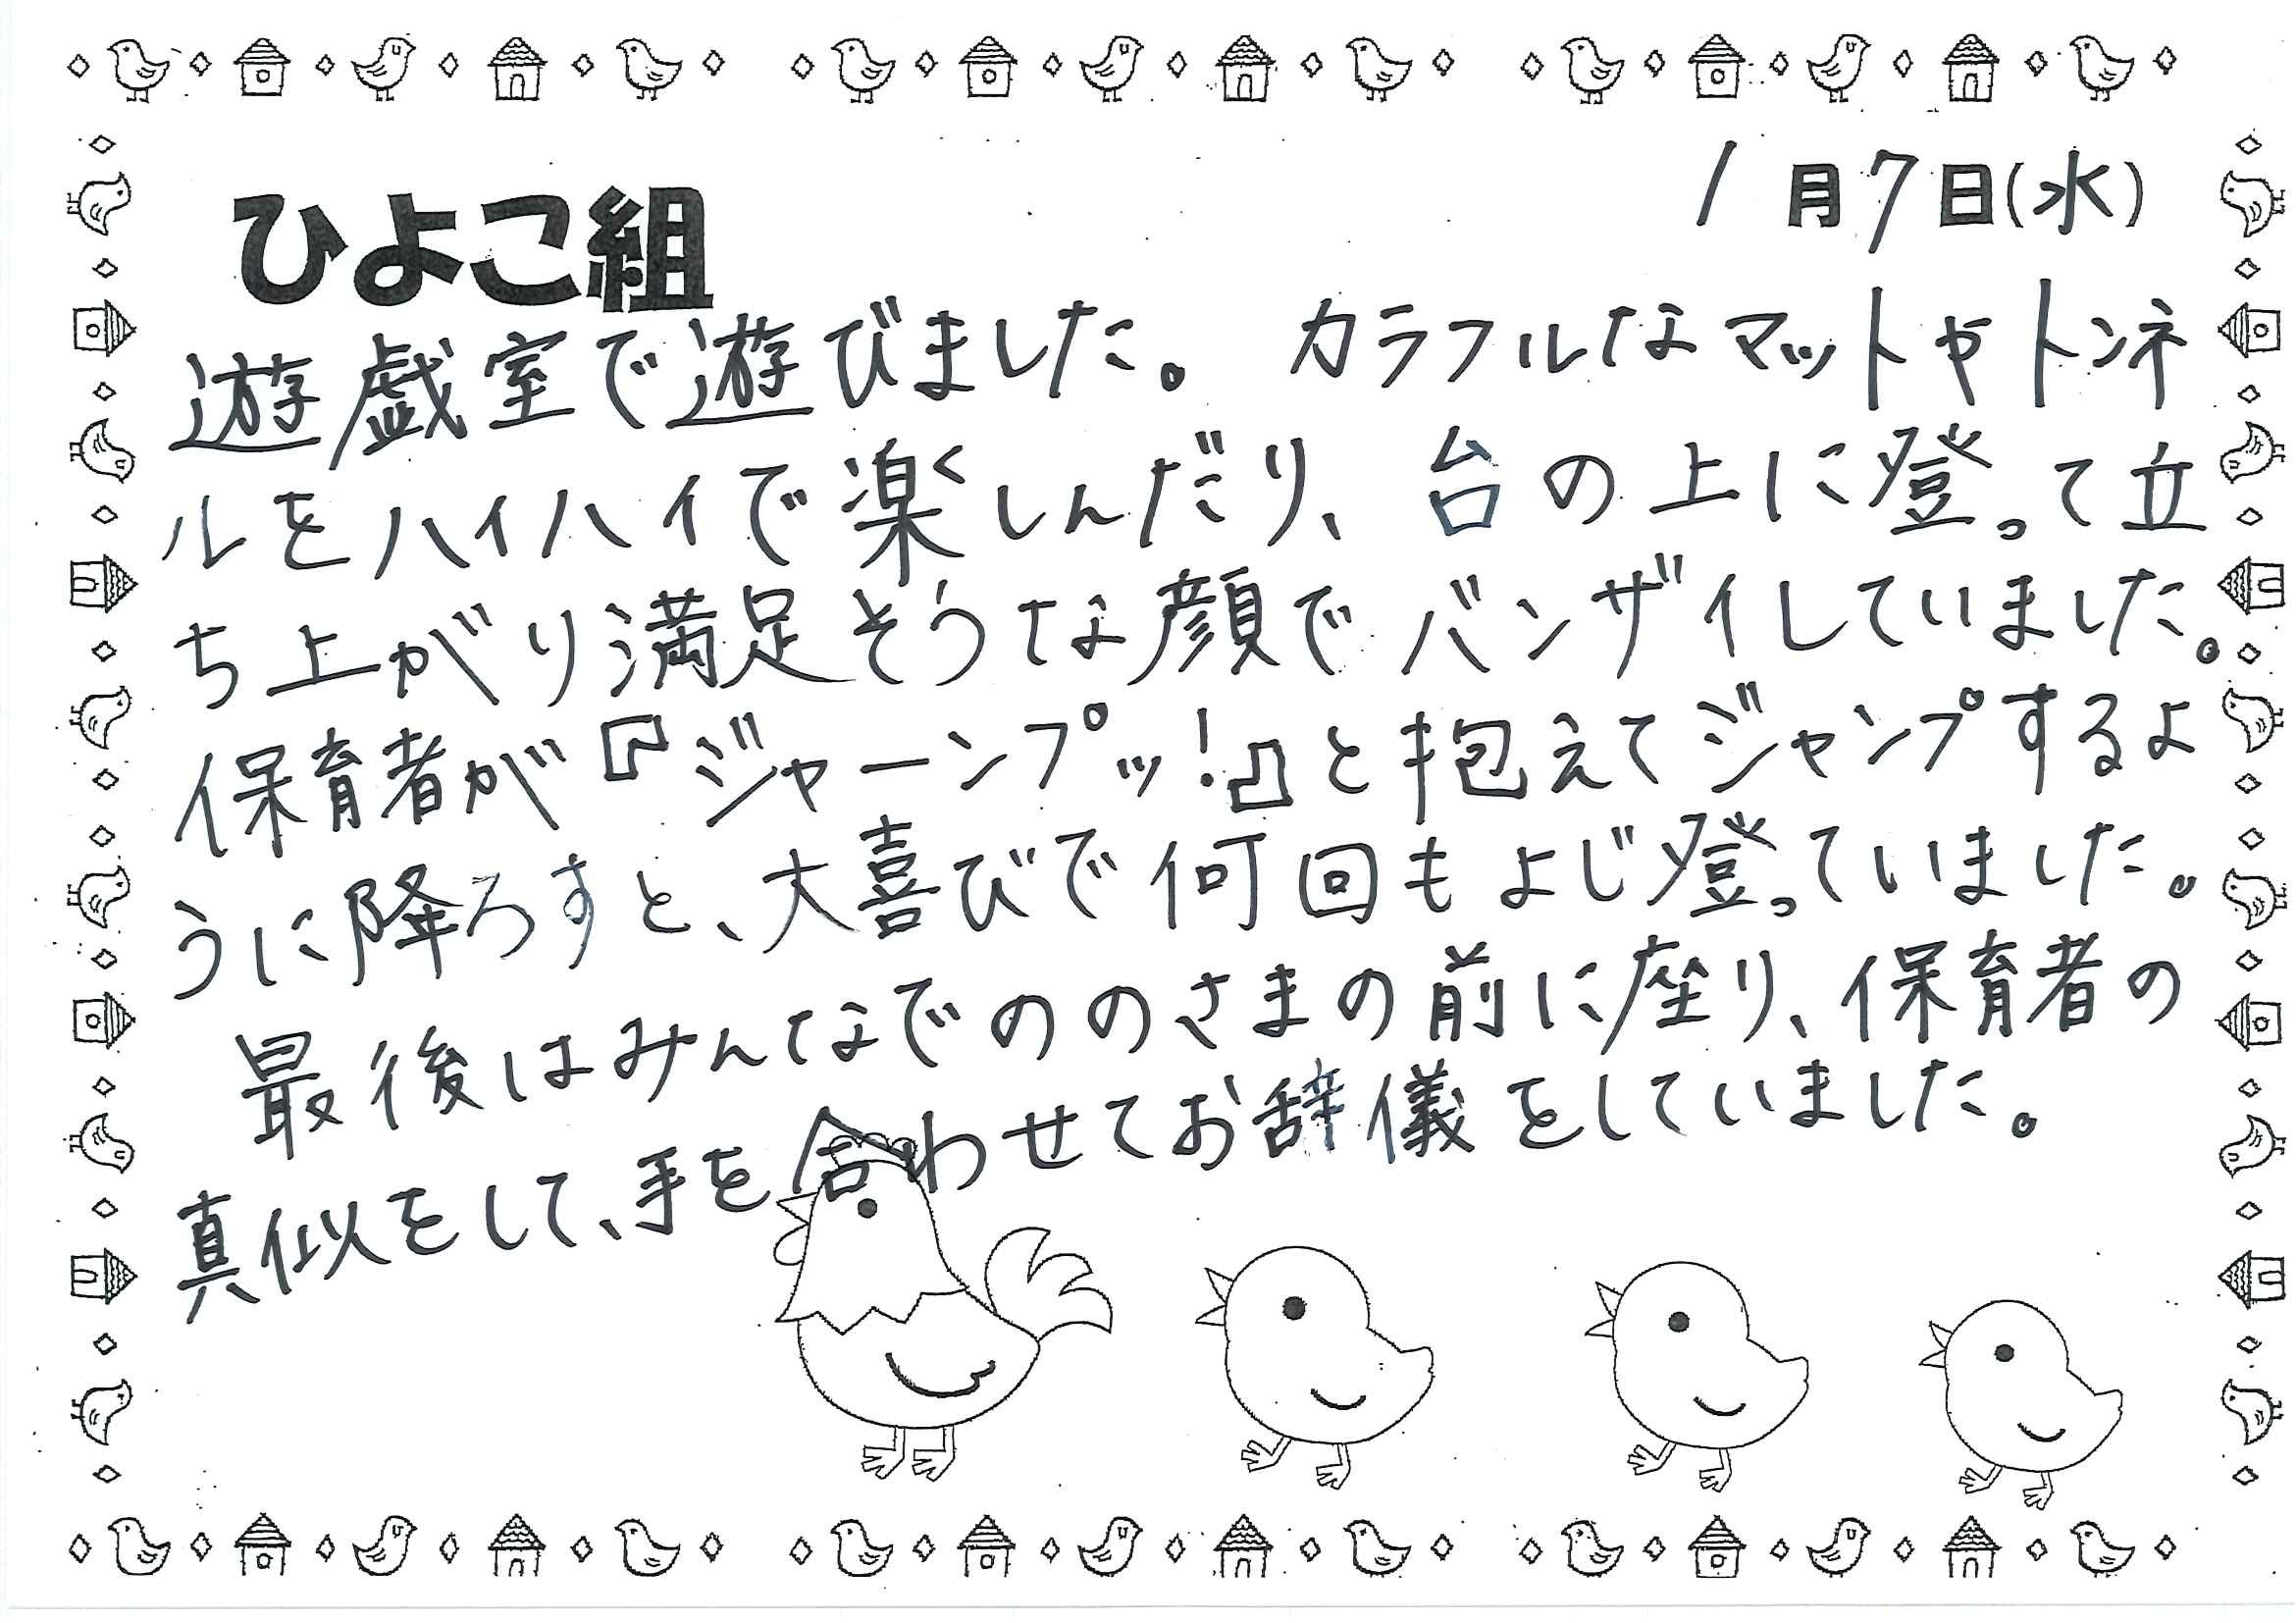 1月7日(水)
ひよこ組
遊戯室で遊びました。 カラフルなマットやトンネ
ルをハイハイで楽しんだり、台の上に登って立
ち上がり満足そうな顔でバンザイしていました。
保育者が『ジャーンプッ!』と抱えてジャンプするよ
うに降ろすと、大喜びで何回もよじ登っていました。
最後はみんなでののさまの前に座り、保育者の
真似をして、手を合わせてお辞儀をしていました。